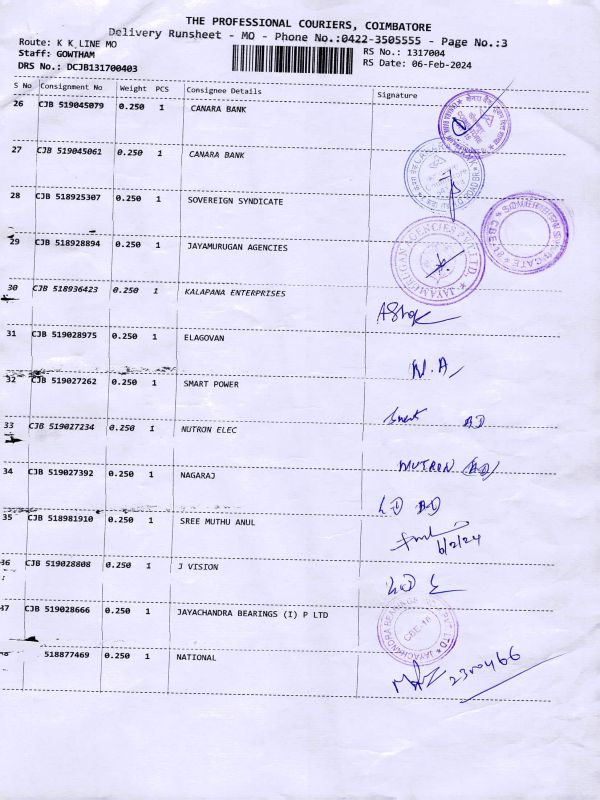 THE PROFESSIONAL COURIERS, COIMBATORE
Delivery Runsheet - MO - Phone No.:0422-3505555 - Page No.:3
Route: K K LINE MO
RS No.: 1317004
Staff: GOWTHAM
RS Date: 06-Feb-2024
DRS No.: DCJB131700403
S No Consignment No Weight PCS Consignee Details Signature
26 CJB 519045079 0.250 1 CANARA BANK
27 CJB 519045061 0.250 1 CANARA BANK
28 CJB 518925307 0.250 1 SOVEREIGN SYNDICATE
29 CJB 518928894 0.250 1 JAYAMURUGAN AGENCIES
30 CJB 518936423 0.250 1 KALAPANA ENTERPRISES
Ashok
31 CJB 519028975 0.250 1 ELAGOVAN
N.A,
32 CJB 519027262 0.250 1 SMART POWER
33 CJB 519027234 0.250 1 NUTRON ELEC
NUTRON
34 CJB 519027392 0.250 1 NAGARAJ
35 CJB 518981910 0.250 1 SREE MUTHU ANUL
6/2/24
36 CJB 519028808 0.250 1 J VISION
37 CJB 519028666 0.250 1 JAYACHANDRA BEARINGS (I) P LTD
CBE-18
518877469 0.250 1 NATIONAL